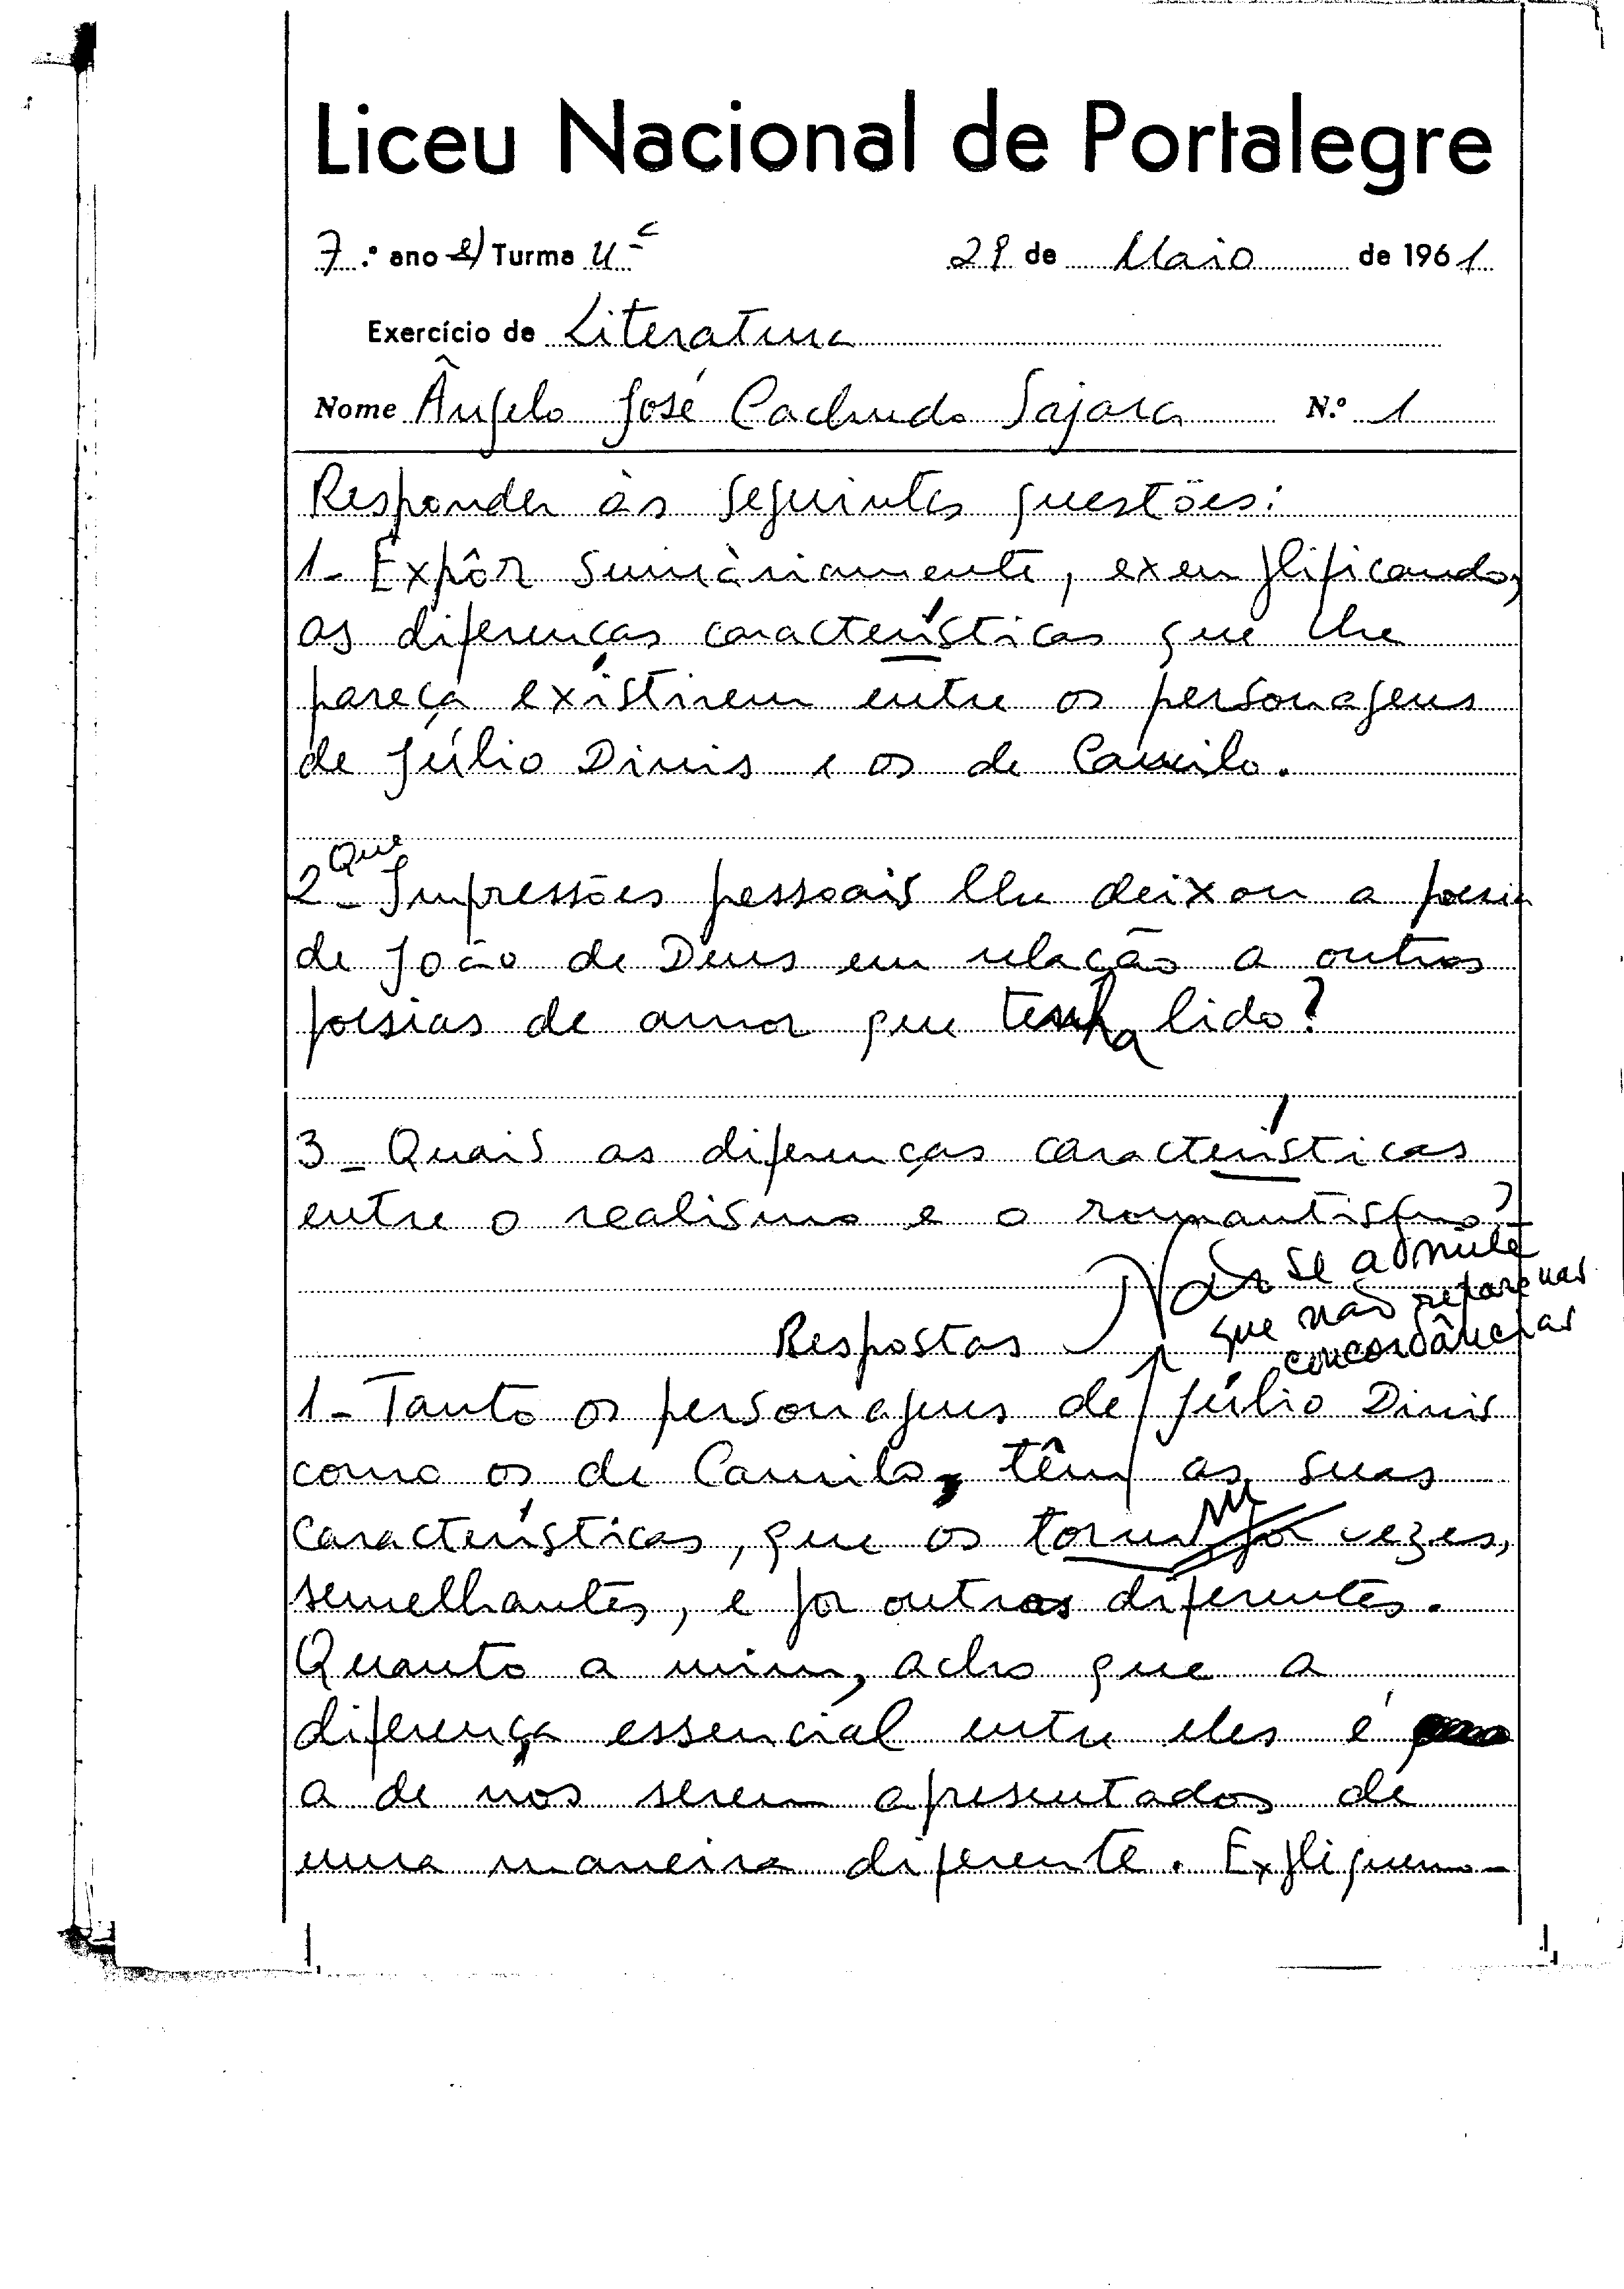 Liceu Nacional de Portalegre
7.º ano e) Turma Uᶜ 29 de Maio de 1961
Exercício de Literatura
Nome Ângelo José Cachudo Sajara N.º 1
Responder às seguintes questões:
1- Expôr sumàriamente, exemplificando,
as diferenças características que lhe
pareça existirem entre os personagens
de Júlio Dinis e os de Camilo.
Que
2- Impressões pessoais lhe deixou a poesia
de João de Deus em relação a outras
poesias de amor que tenha lido?
3- Quais as diferenças características
entre o realismo e o romantismo?
Não se admite
que não repare nas
concordâncias
Respostas
1- Tanto os personagens de Júlio Dinis
como os de Camilo, têm as suas
características, que os torna por vezes,
semelhantes, e por outras diferentes.
Quanto a mim, acho que a
diferença essencial entre eles é
a de nos serem apresentados de
uma maneira diferente. Expliquemo-